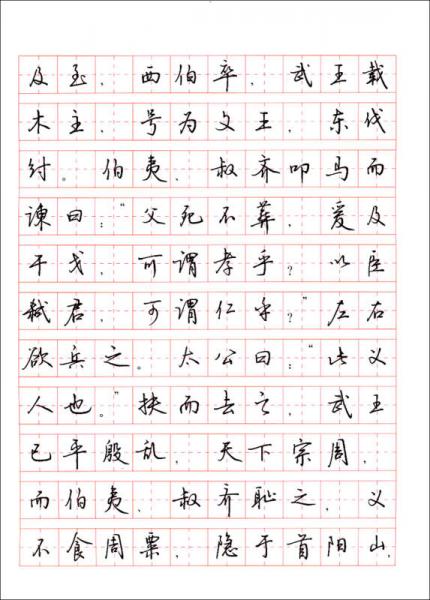 及至，西伯卒，武王载
木主，号为文王，东伐
纣。伯夷、叔齐叩马而
谏曰：“父死不葬，爰及
干戈，可谓孝乎？以臣
弑君，可谓仁乎？”左右
欲兵之。太公曰：“此义
人也。”扶而去之，武王
已平殷乱，天下宗周，
而伯夷、叔齐耻之，义
不食周粟，隐于首阳山，